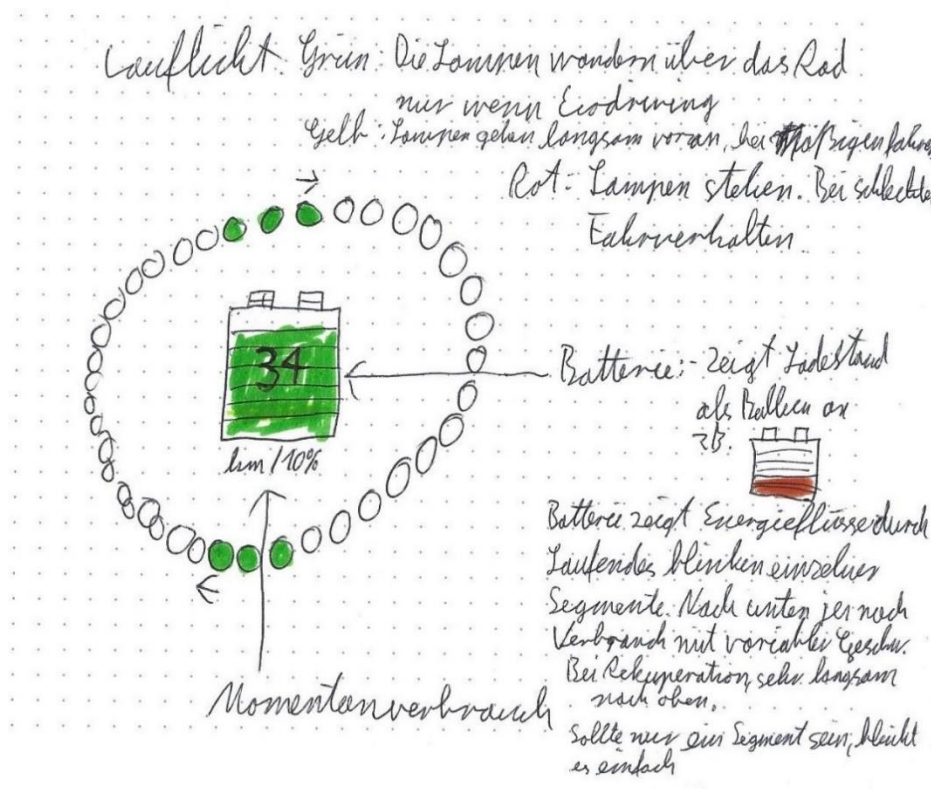 Lauflicht. Grün: Die Lampen wandern über das Rad
nur wenn Ecodriving
Gelb: Lampen gehen langsam voran, bei Mäßigen fahre
Rot: Lampen stehen. Bei schlechte
Fahrverhalten
34
km/10%
Batterie: - Zeigt Ladestand
als Balken an
zB.
Batterie zeigt Energieflüsse durch
Laufendes blinken einzelner
Segmente. Nach unten jer nach
Verbrauch mit variabler Geschw.
Bei Rekuperation, sehr langsam
nach oben.
Sollte nur ein Segment sein, blinkt
es einfach
Momentanverbrauch